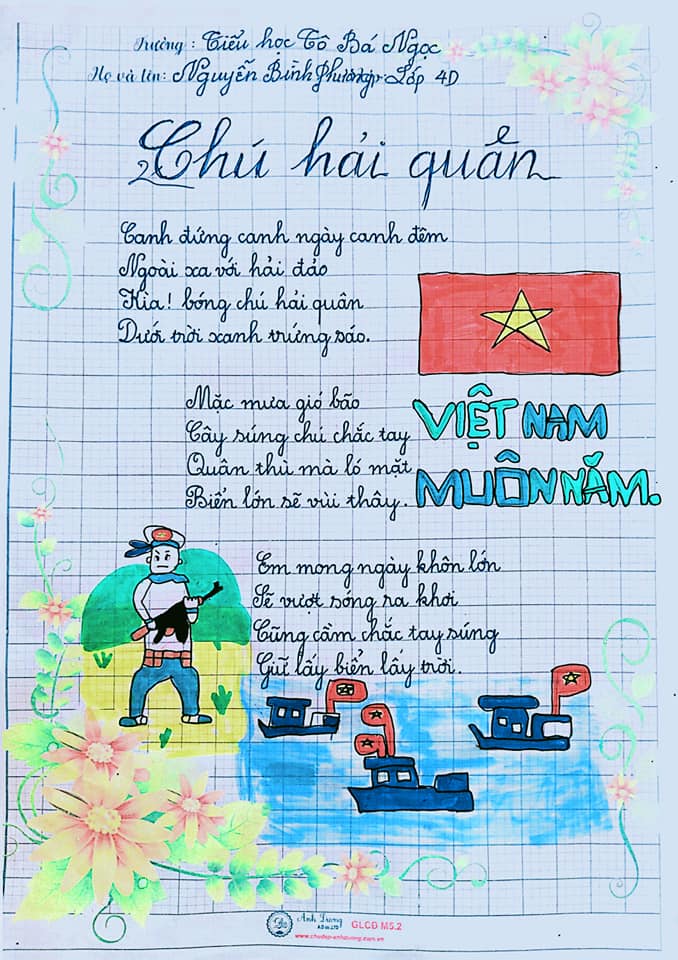 Trường: Tiểu học Tô Bá Ngọc
Họ và tên: Nguyễn Bình Phương Lớp 4D
Chú hải quân
Canh đứng canh ngày canh đêm
Ngoài xa với hải đảo
Kìa! bóng chú hải quân
Dưới trời xanh trứng sáo.
Mặc mưa gió bão
Cây súng chú chắc tay
Quân thù mà ló mặt
Biển lớn sẽ vùi thây.
VIỆT NAM
MUÔN NĂM.
Em mong ngày khôn lớn
Sẽ vượt sóng ra khơi
Cũng cầm chắc tay súng
Giữ lấy biển lấy trời.
Anh Dương
GLCĐ M5.2
www.chudep-anhduong.com.vn